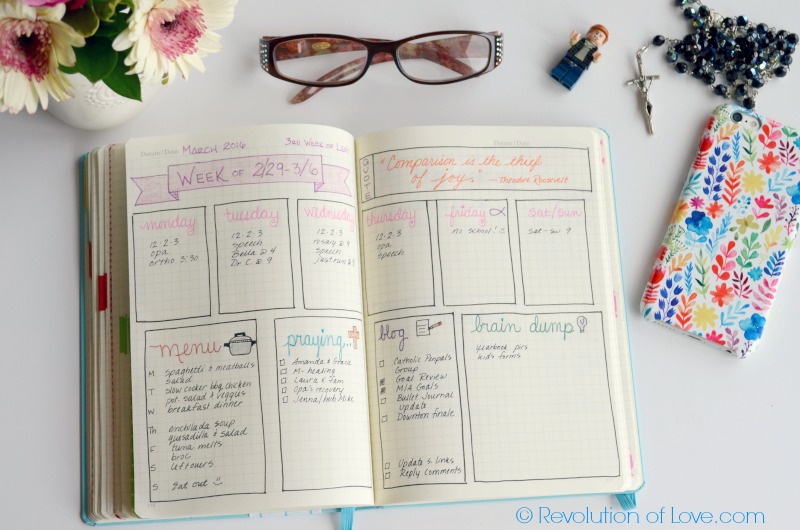 Datum / Date: MARCH 2016
3RD WEEK OF LENT
WEEK OF 2/29-3/6
monday
12-2-3
opa
ortho 3:30
tuesday
12-2-3
speech
Bella @ 4
Dr. C @ 9
wednesday
12-2-3
rosary @ 9
speech
last run @
menu
M spaghetti & meatballs
salad
T slow cooker bbq chicken
pot. salad & veggies
W breakfast dinner
Th enchilada soup
quesadilla & salad
F tuna melts
broc
S leftovers
S Eat out
praying...
Amanda & Grace
M- healing
Laura & fam
Opa's recovery
Jenna/hub Mike
Datum / Date:
QUOTE
"Comparison is the thief
of joy." — Theodore Roosevelt
thursday
12-2-3
opa
speech
friday
no school!
sat/sun
sat-su 9
blog
Catholic Penpals
Group
Goal Review
M/A Goals
Bullet Journal
update
Downton finale
Update s. links
Reply Comments
brain dump
yearbook pics
kid's forms
© Revolution of Love.com